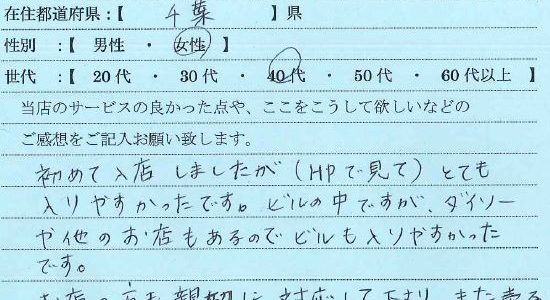 在住都道府県：【 千葉 】県
性別 ：【 男性 ・ 女性 】
世代 ：【 20代 ・ 30代 ・ 40代 ・ 50代 ・ 60代以上 】
当店のサービスの良かった点や、ここをこうして欲しいなどの
ご感想をご記入お願い致します。
初めて入店しましたが（HPで見て）とても
入りやすかったです。ビルの中ですが、ダイソー
や他のお店もあるのでビルも入りやすかった
です。
お店の方も親切に対応して下さり、また売る